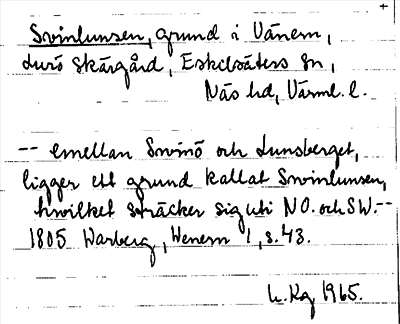 Svinlunsen, grund i Vänern,
Lurö skärgård, Eskilsäters sn,
Näs hd, Värml. l.
-- emellan Svinö och Lunsberget,
ligger ett grund kallat Svinlunsen,
hwilket sträcker sig uti NO. och SW.--
1805 Warberg, Wenern 1, s.43.
L.Kg 1965.